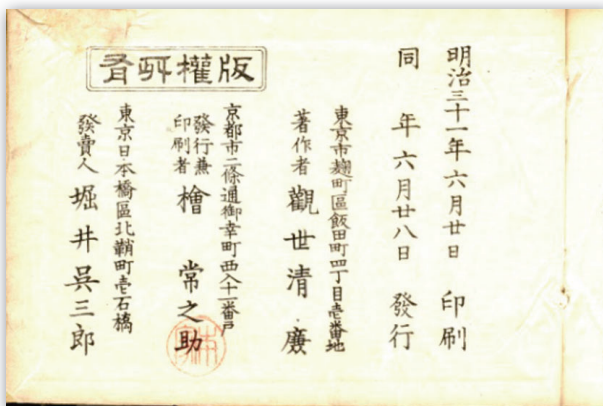 明治三十一年六月廿日 印刷
同 年 六月廿八日 發行
東京市麹町區飯田町四丁目壱番地
著作者 觀世清廉
京都市二條通御幸町西入十一番戸
發行兼
印刷者 檜 常之助
東京日本橋區北鞘町壱石橋
發賣人 堀井吳三郎
版權所有